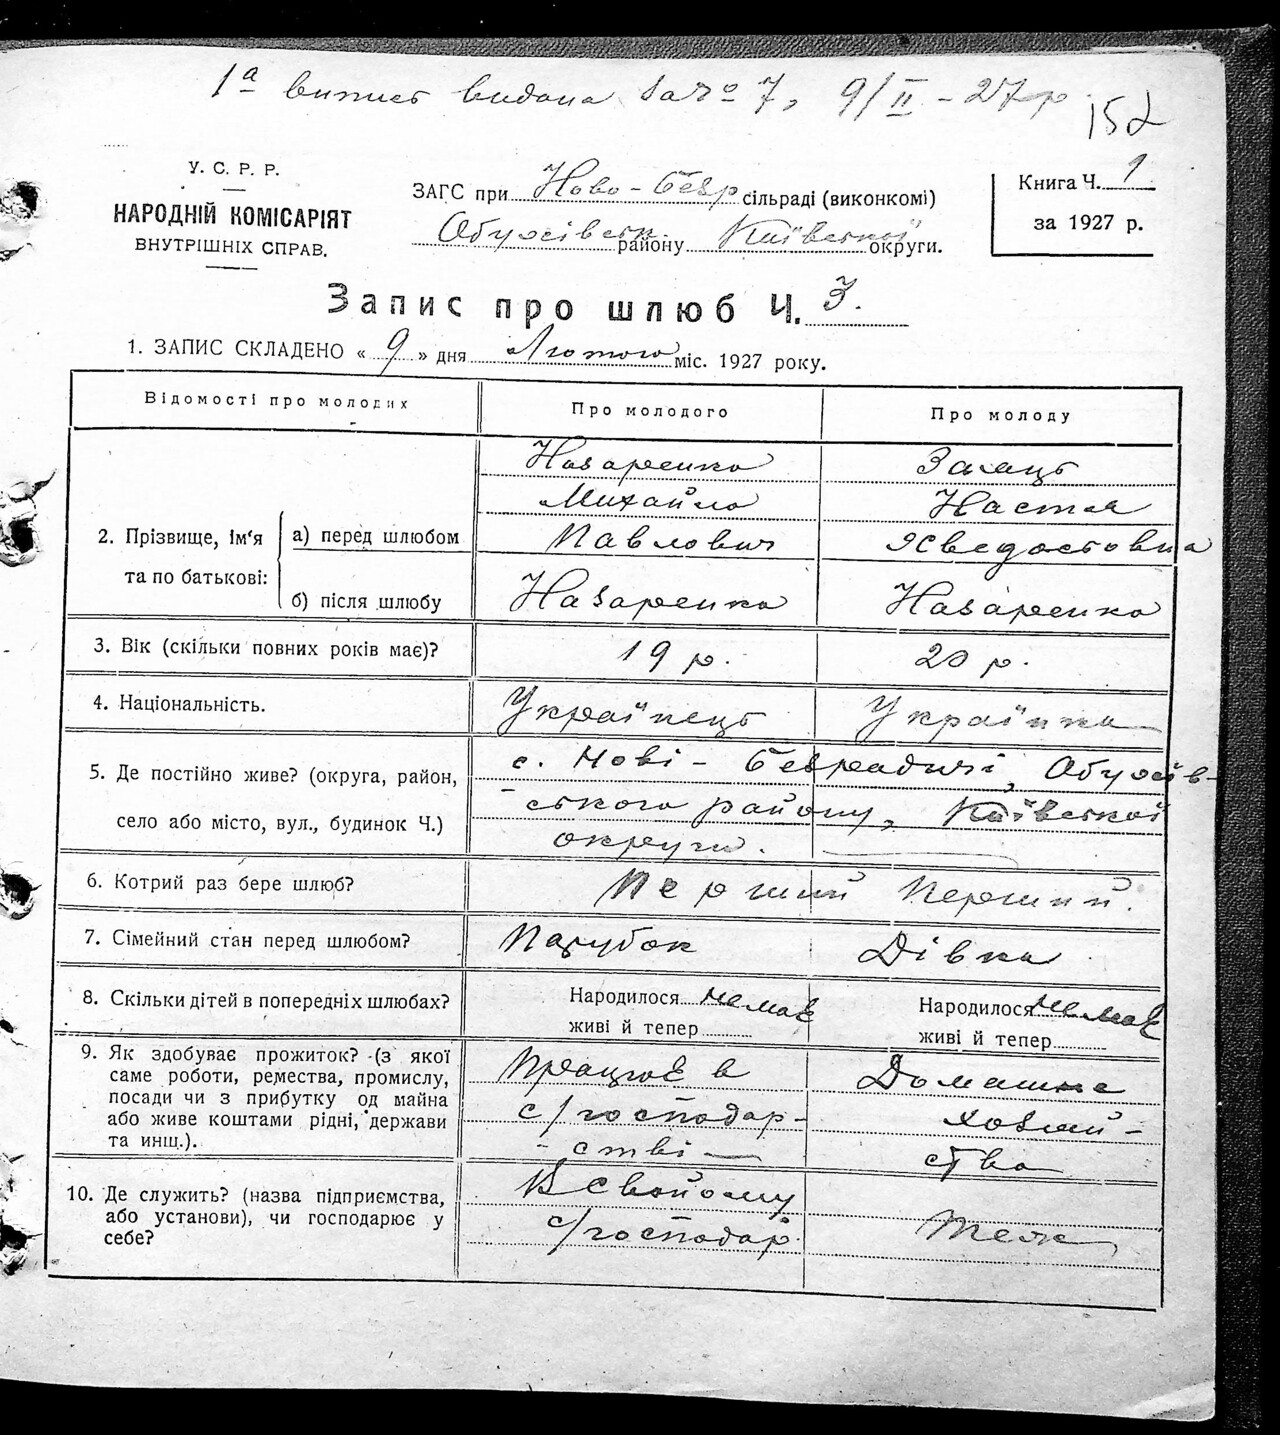 1а випись видана за № 7, 9/II - 27 р.
152
У. С. Р. Р.
НАРОДНІЙ КОМІСАРІЯТ
ВНУТРІШНІХ СПРАВ.
ЗАГС при Ново-Безр сільраді (виконкомі)
Обухівськ району Київської округи.
Книга Ч. 1
за 1927 р.
Запис про шлюб Ч. 3.
1. ЗАПИС СКЛАДЕНО « 9 » дня Лютого міс. 1927 року.
Відомості про молодих
Про молодого
Про молоду
2. Прізвище, ім'я та по батькові:
а) перед шлюбом
Назаренко
Михайло
Павлович
Заяць
Настя
б) після шлюбу
Назаренко
Назаренко
3. Вік (скільки повних років має)?
19 р.
20 р.
4. Національність.
Українець
Українка
5. Де постійно живе? (округа, район,
село або місто, вул., будинок Ч.)
с. Нові - Безрадичі, Обухів-
ського району, Київської
округи.
6. Котрий раз бере шлюб?
Перший
Перший.
7. Сімейний стан перед шлюбом?
Парубок
Дівка
8. Скільки дітей в попередніх шлюбах?
Народилося немає
живі й тепер
Народилося немає
живі й тепер
9. Як здобуває прожиток? (з якої
саме роботи, ремества, промислу,
посади чи з прибутку од майна
або живе коштами рідні, держави
та инш.).
Працює в
с/господар-
-стві
Домашнє
хозяй-
ство
10. Де служить? (назва підприємства,
або установи), чи господарює у
себе?
В свойому
с/господар.
Теж